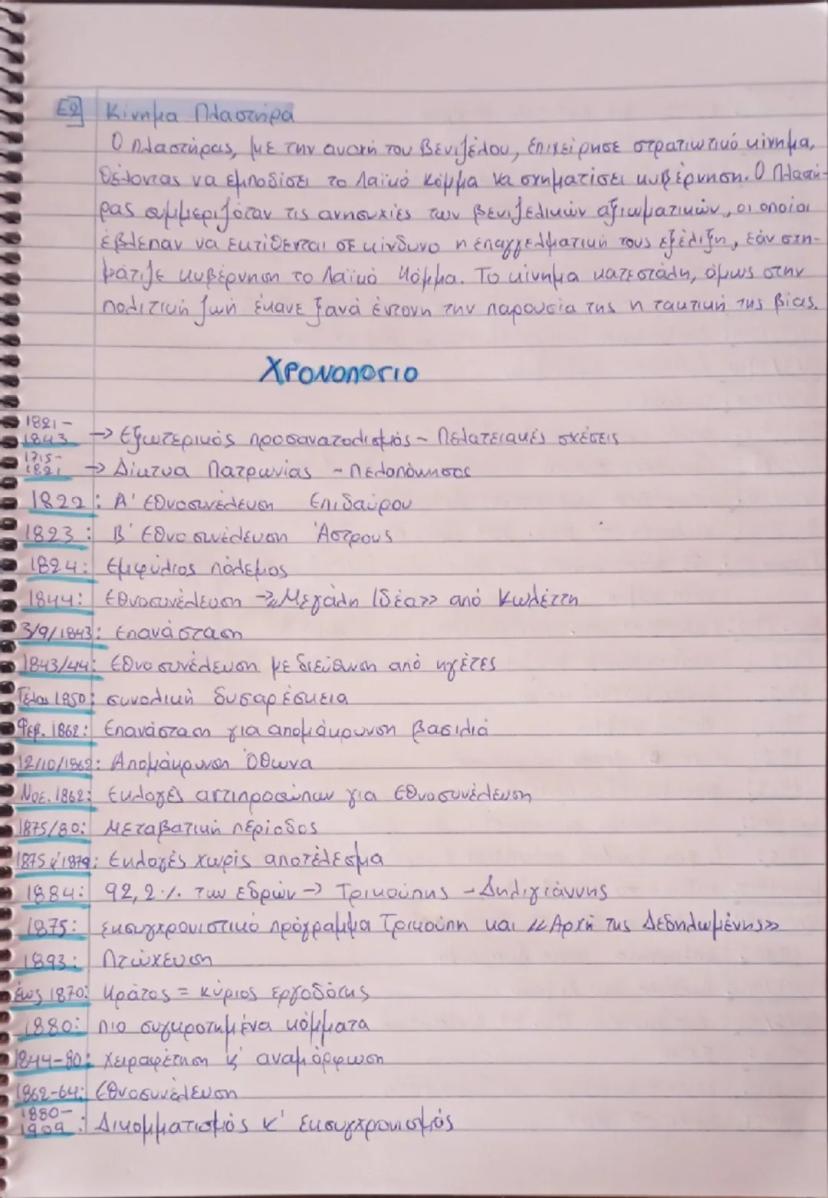 Ε2] Κίνημα Πλαστήρα
Ο Πλαστήρας, με την ανοχή του Βενιζέλου, επιχείρησε στρατιωτικό κίνημα,
θέλοντας να εμποδίσει το Λαϊκό Κόμμα να σχηματίσει κυβέρνηση. Ο Πλαστή-
ρας συμμεριζόταν τις ανησυχίες των βενιζελικών αξιωματικών, οι οποίοι
έβλεπαν να εκτίθεται σε κίνδυνο η επαγγελματική τους εξέλιξη, εάν σχη-
μάτιζε κυβέρνηση το Λαϊκό Κόμμα. Το κίνημα κατεστάλη, όμως στην
πολιτική ζωή έκανε ξανά έντονη την παρουσία της η τακτική της βίας.
ΧΡΟΝΟΛΟΓΙΟ
1821-1843 → Εξωτερικός προσανατολισμός - Πελατειακές σχέσεις
1715-1821 → Δίκτυα Πατρωνίας - Πελοπόννησος
1822: Α' Εθνοσυνέλευση Επιδαύρου
1823: Β' Εθνοσυνέλευση Άστρους
1824: Εμφύλιος πόλεμος
1844: Εθνοσυνέλευση → «Μεγάλη Ιδέα» από Κωλέττη
3/9/1843: Επανάσταση
1843/44: Εθνοσυνέλευση με διεύθυνση από ηγέτες
Τέλος 1850: συνολική δυσαρέσκεια
Φεβ. 1862: Επανάσταση για απομάκρυνση βασιλιά
12/10/1862: Απομάκρυνση Όθωνα
Νοε. 1862: Εκλογές αντιπροσώπων για Εθνοσυνέλευση
1875/80: Μεταβατική περίοδος
1875 κ' 1879: Εκλογές χωρίς αποτέλεσμα
1884: 92,2% των εδρών → Τρικούπης - Δηλιγιάννης
1875: εκσυγχρονιστικό πρόγραμμα Τρικούπη και «Αρχή της Δεδηλωμένης»
1893: Πτώχευση
έως 1870: Κράτος = κύριος εργοδότης
1880: πιο συγκροτημένα κόμματα
1844-80: Χειραφέτηση κ' αναμόρφωση
1862-64: Εθνοσυνέλευση
1880-1909: Δικομματισμός κ' εκσυγχρονισμός